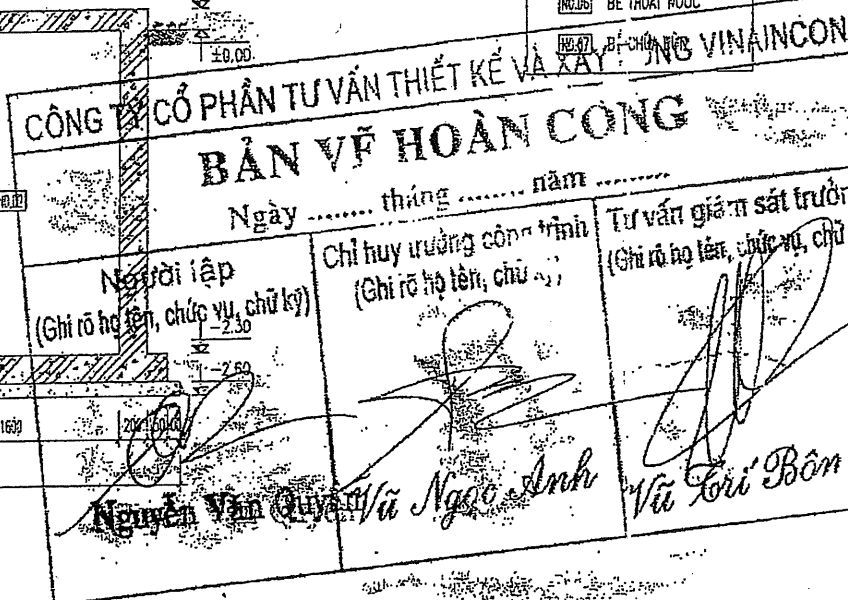 NO.06 BỂ THOÁT NƯỚC
±0.00
NO.07
CÔNG TY CỔ PHẦN TƯ VẤN THIẾT KẾ VÀ XÂY DỰNG VINAINCON
BẢN VẼ HOÀN CÔNG
Ngày ........ tháng ........ năm .........
Người lập
(Ghi rõ họ tên, chức vụ, chữ ký)
Chỉ huy trưởng công trình
(Ghi rõ họ tên, chữ ký)
Tư vấn giám sát trưởng
(Ghi rõ họ tên, chức vụ, chữ
-2.30
-2.60
1600
200
Nguyễn Văn Quyảm
Vũ Ngọc Anh
Vũ Trí Bôn